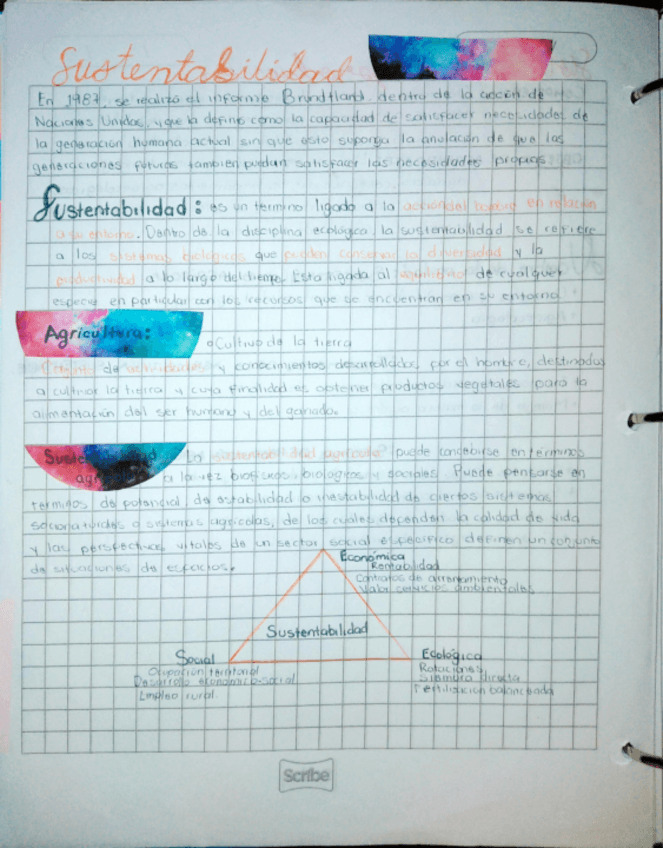 Sustentabilidad
En 1987, se realizó el informe Brundtland, dentro de la acción de
Naciones Unidas, y que la define como la capacidad de satisfacer necesidades de
la generación humana actual sin que esto suponga la anulación de que las
generaciones futuras tambien puedan satisfacer las necesidades propias.
Sustentabilidad: es un termino ligado a la acción del hombre en relación
a su entorno. Dentro de la disciplina ecológica, la sustentabilidad se refiere
a los sistemas biológicos que pueden conservar la diversidad y la
productividad a lo largo del tiempo. Esta ligada al equilibrio de cualquier
especie en particular con los recursos que se encuentran en su entorno
Agricultura:
Cultivo de la tierra
de actividades y conocimientos desarrollados por el hombre, destinados
a cultivar la tierra y cuya finalidad es obtener productos vegetales para la
alimentación del ser humano y del ganado.
La sustentabilidad agrícola puede concebirse en términos
a la vez biofísicos, biológicos y sociales. Puede pensarse en
terminos de potencial, de estabilidad o inestabilidad de ciertos sistemas
socionaturales o sistemas agrícolas, de los cuales dependen la calidad de vida
y las perspectivas vitales de un sector social especifico definen un conjunto
de situaciones de espacios.
Económica
Rentabilidad
Contratos de arrendamiento
Valor servicios ambientales
Sustentabilidad
Social
Ocupación territorial
Desarrollo economico-social
Empleo rural.
Ecológica
Rotaciones
Siembra directa
Fertilización balanceada
Scribe